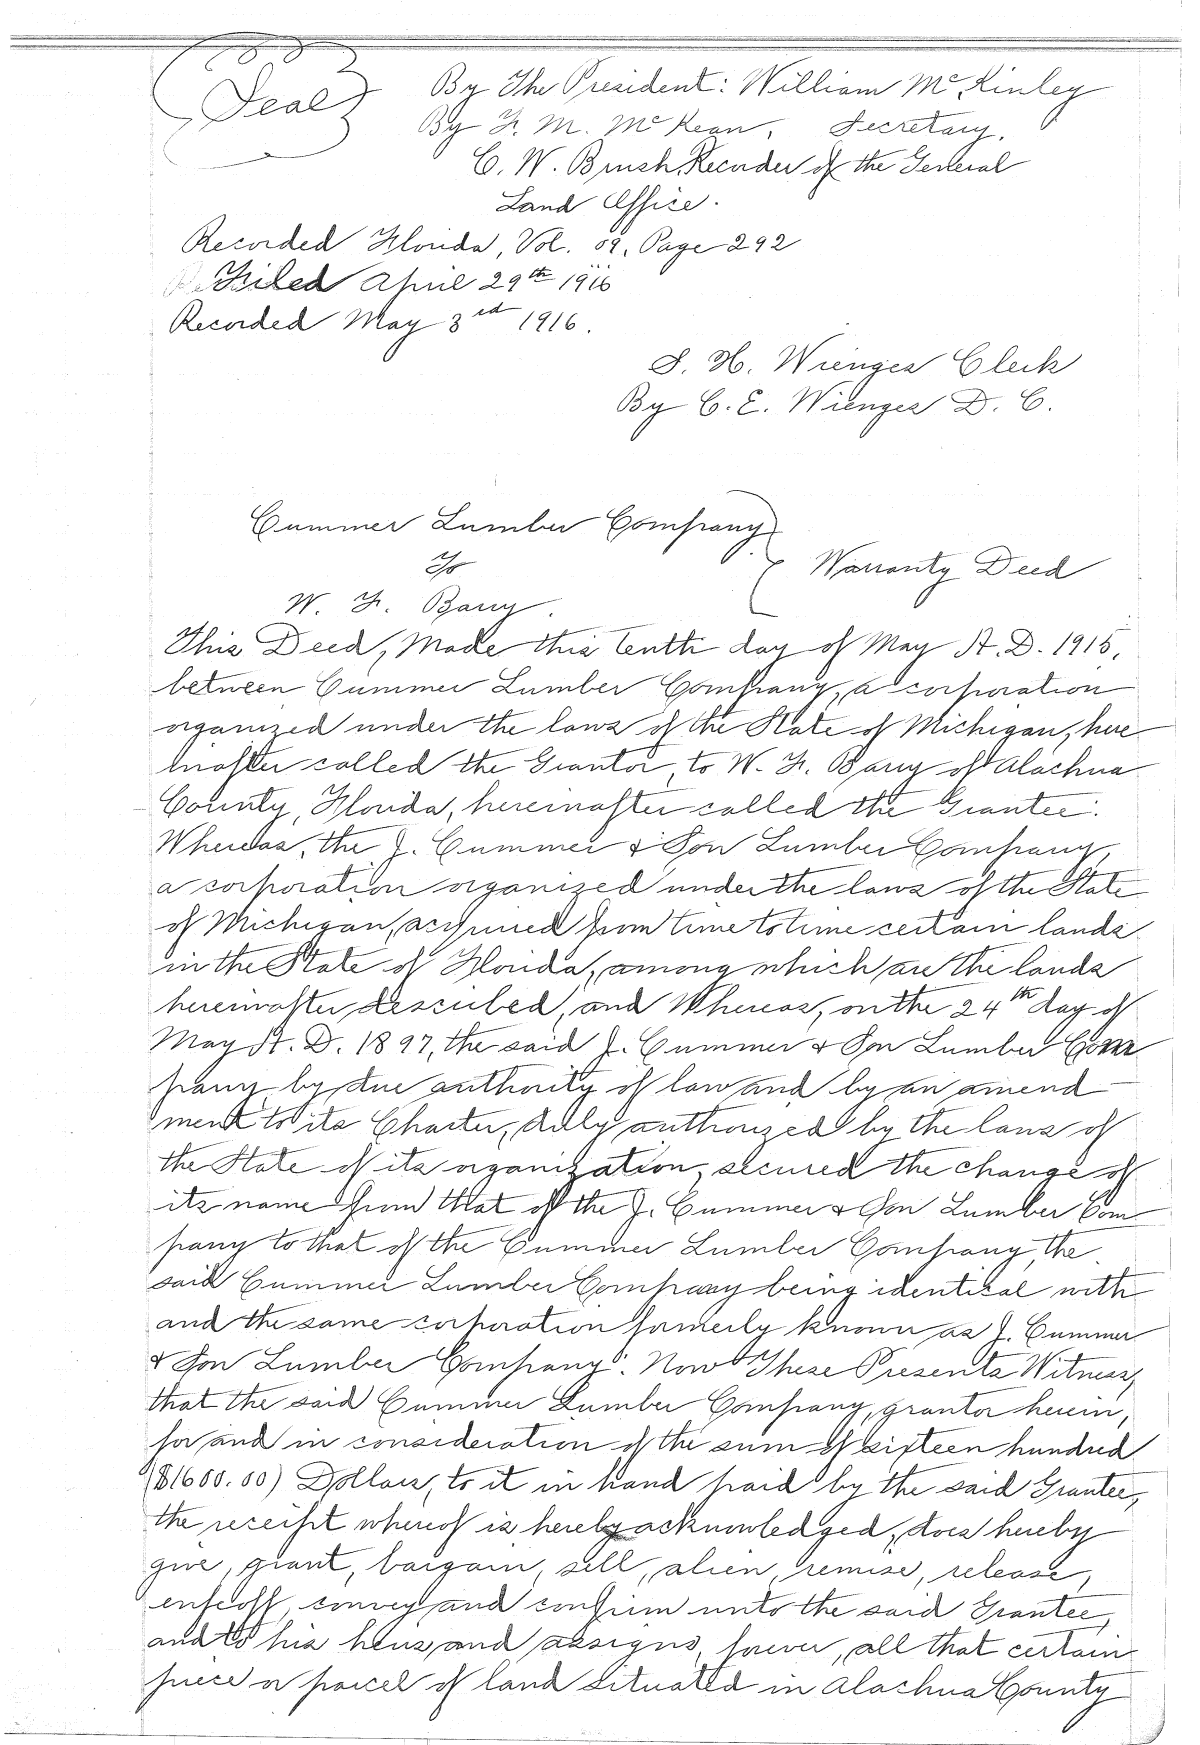 Seal
By The President: William McKinley
By F. M. McKean, Secretary.
C. W. Brush, Recorder of the General
Land Office.
Recorded Florida, Vol. 09, Page 292
Filed April 29th 1916
Recorded May 3rd 1916.
S. H. Wienges Clerk
By C. E. Wienges D. C.
Cummer Lumber Company
To
Warranty Deed
W. F. Barry.
This Deed, Made this tenth day of May A. D. 1915,
between Cummer Lumber Company, a corporation
organized under the laws of the State of Michigan, here
inafter called the Grantor, to W. F. Barry of Alachua
County, Florida, hereinafter called the Grantee:
Whereas, the J. Cummer & Son Lumber Company,
a corporation organized under the laws of the State
of Michigan, acquired from time to time certain lands
in the State of Florida, among which are the lands
hereinafter described, and Whereas, on the 24th day of
May A. D. 1897, the said J. Cummer & Son Lumber Com
pany by due authority of law and by an amend
ment to its Charter, duly authorized by the laws of
the State of its organization, secured the change of
its name from that of the J. Cummer & Son Lumber Com
pany to that of the Cummer Lumber Company, the
said Cummer Lumber Company being identical with
and the same corporation formerly known as J. Cummer
& Son Lumber Company: Now These Presents Witness,
that the said Cummer Lumber Company, grantor herein,
for and in consideration of the sum of sixteen hundred
($1600.00) Dollars, to it in hand paid by the said Grantee,
the receipt whereof is hereby acknowledged, does hereby
give, grant, bargain, sell, alien, remise, release,
enfeoff, convey and confirm unto the said Grantee,
and to his heirs and assigns, forever, all that certain
piece or parcel of land situated in Alachua County